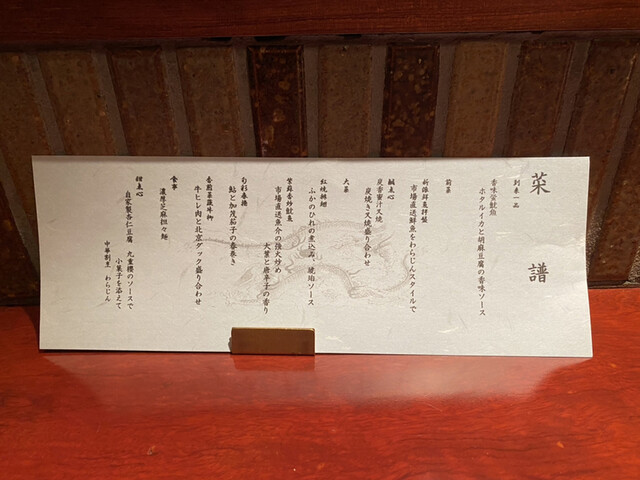 菜譜
到奉一品
香味蛍魷魚
ホタルイカと胡麻豆腐の香味ソース
前菜
新派鮮魚拌盤
市場直送鮮魚をわらじんスタイルで
鹹点心
炭香蜜汁叉焼
炭焼き叉焼盛り合わせ
大菜
紅焼排翅
ふかのひれの煮込み、琥珀ソース
紫蘇香炒魷魚
市場直送魚介の強火炒め
大葉と唐辛子の香り
旬彩春捲
鮎と加茂茄子の春巻き
香煎葱爆牛柳
牛ヒレ肉と北京ダック盛り合わせ
食事
濃厚芝麻担々麺
甜点心
自家製杏仁豆腐 九重櫻のソースで
小菓子を添えて
中華割烹 わらじん